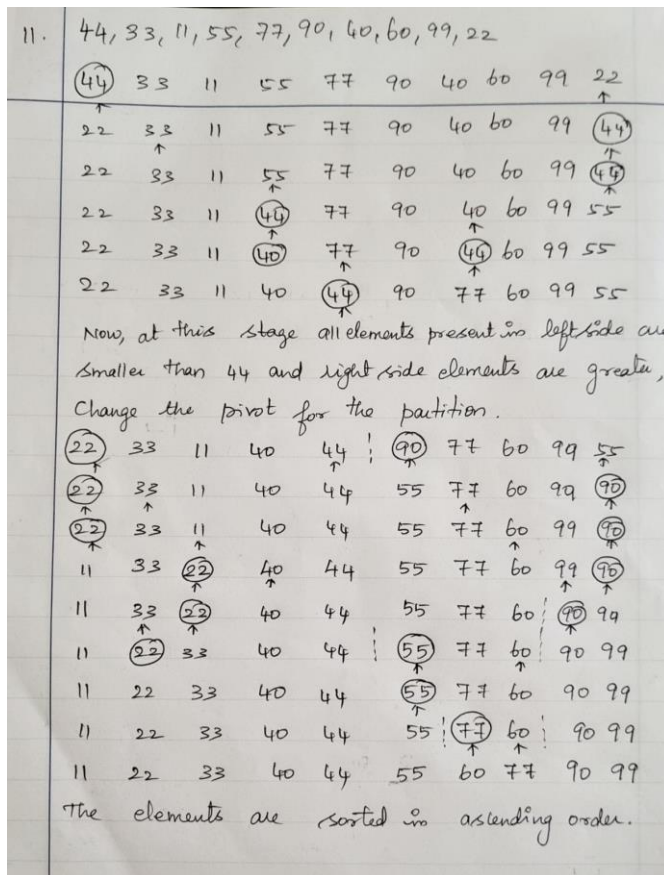 11. 44, 33, 11, 55, 77, 90, 40, 60, 99, 22
44 33 11 55 77 90 40 60 99 22
22 33 11 55 77 90 40 60 99 44
22 33 11 55 77 90 40 60 99 44
22 33 11 44 77 90 40 60 99 55
22 33 11 40 77 90 44 60 99 55
22 33 11 40 44 90 77 60 99 55
Now, at this stage all elements present in left side are
smaller than 44 and right side elements are greater,
Change the pivot for the partition.
22 33 11 40 44 90 77 60 99 55
22 33 11 40 44 55 77 60 99 90
22 33 11 40 44 55 77 60 99 90
11 33 22 40 44 55 77 60 99 90
11 33 22 40 44 55 77 60 90 99
11 22 33 40 44 55 77 60 90 99
11 22 33 40 44 55 77 60 90 99
11 22 33 40 44 55 77 60 90 99
11 22 33 40 44 55 60 77 90 99
The elements are sorted in ascending order.